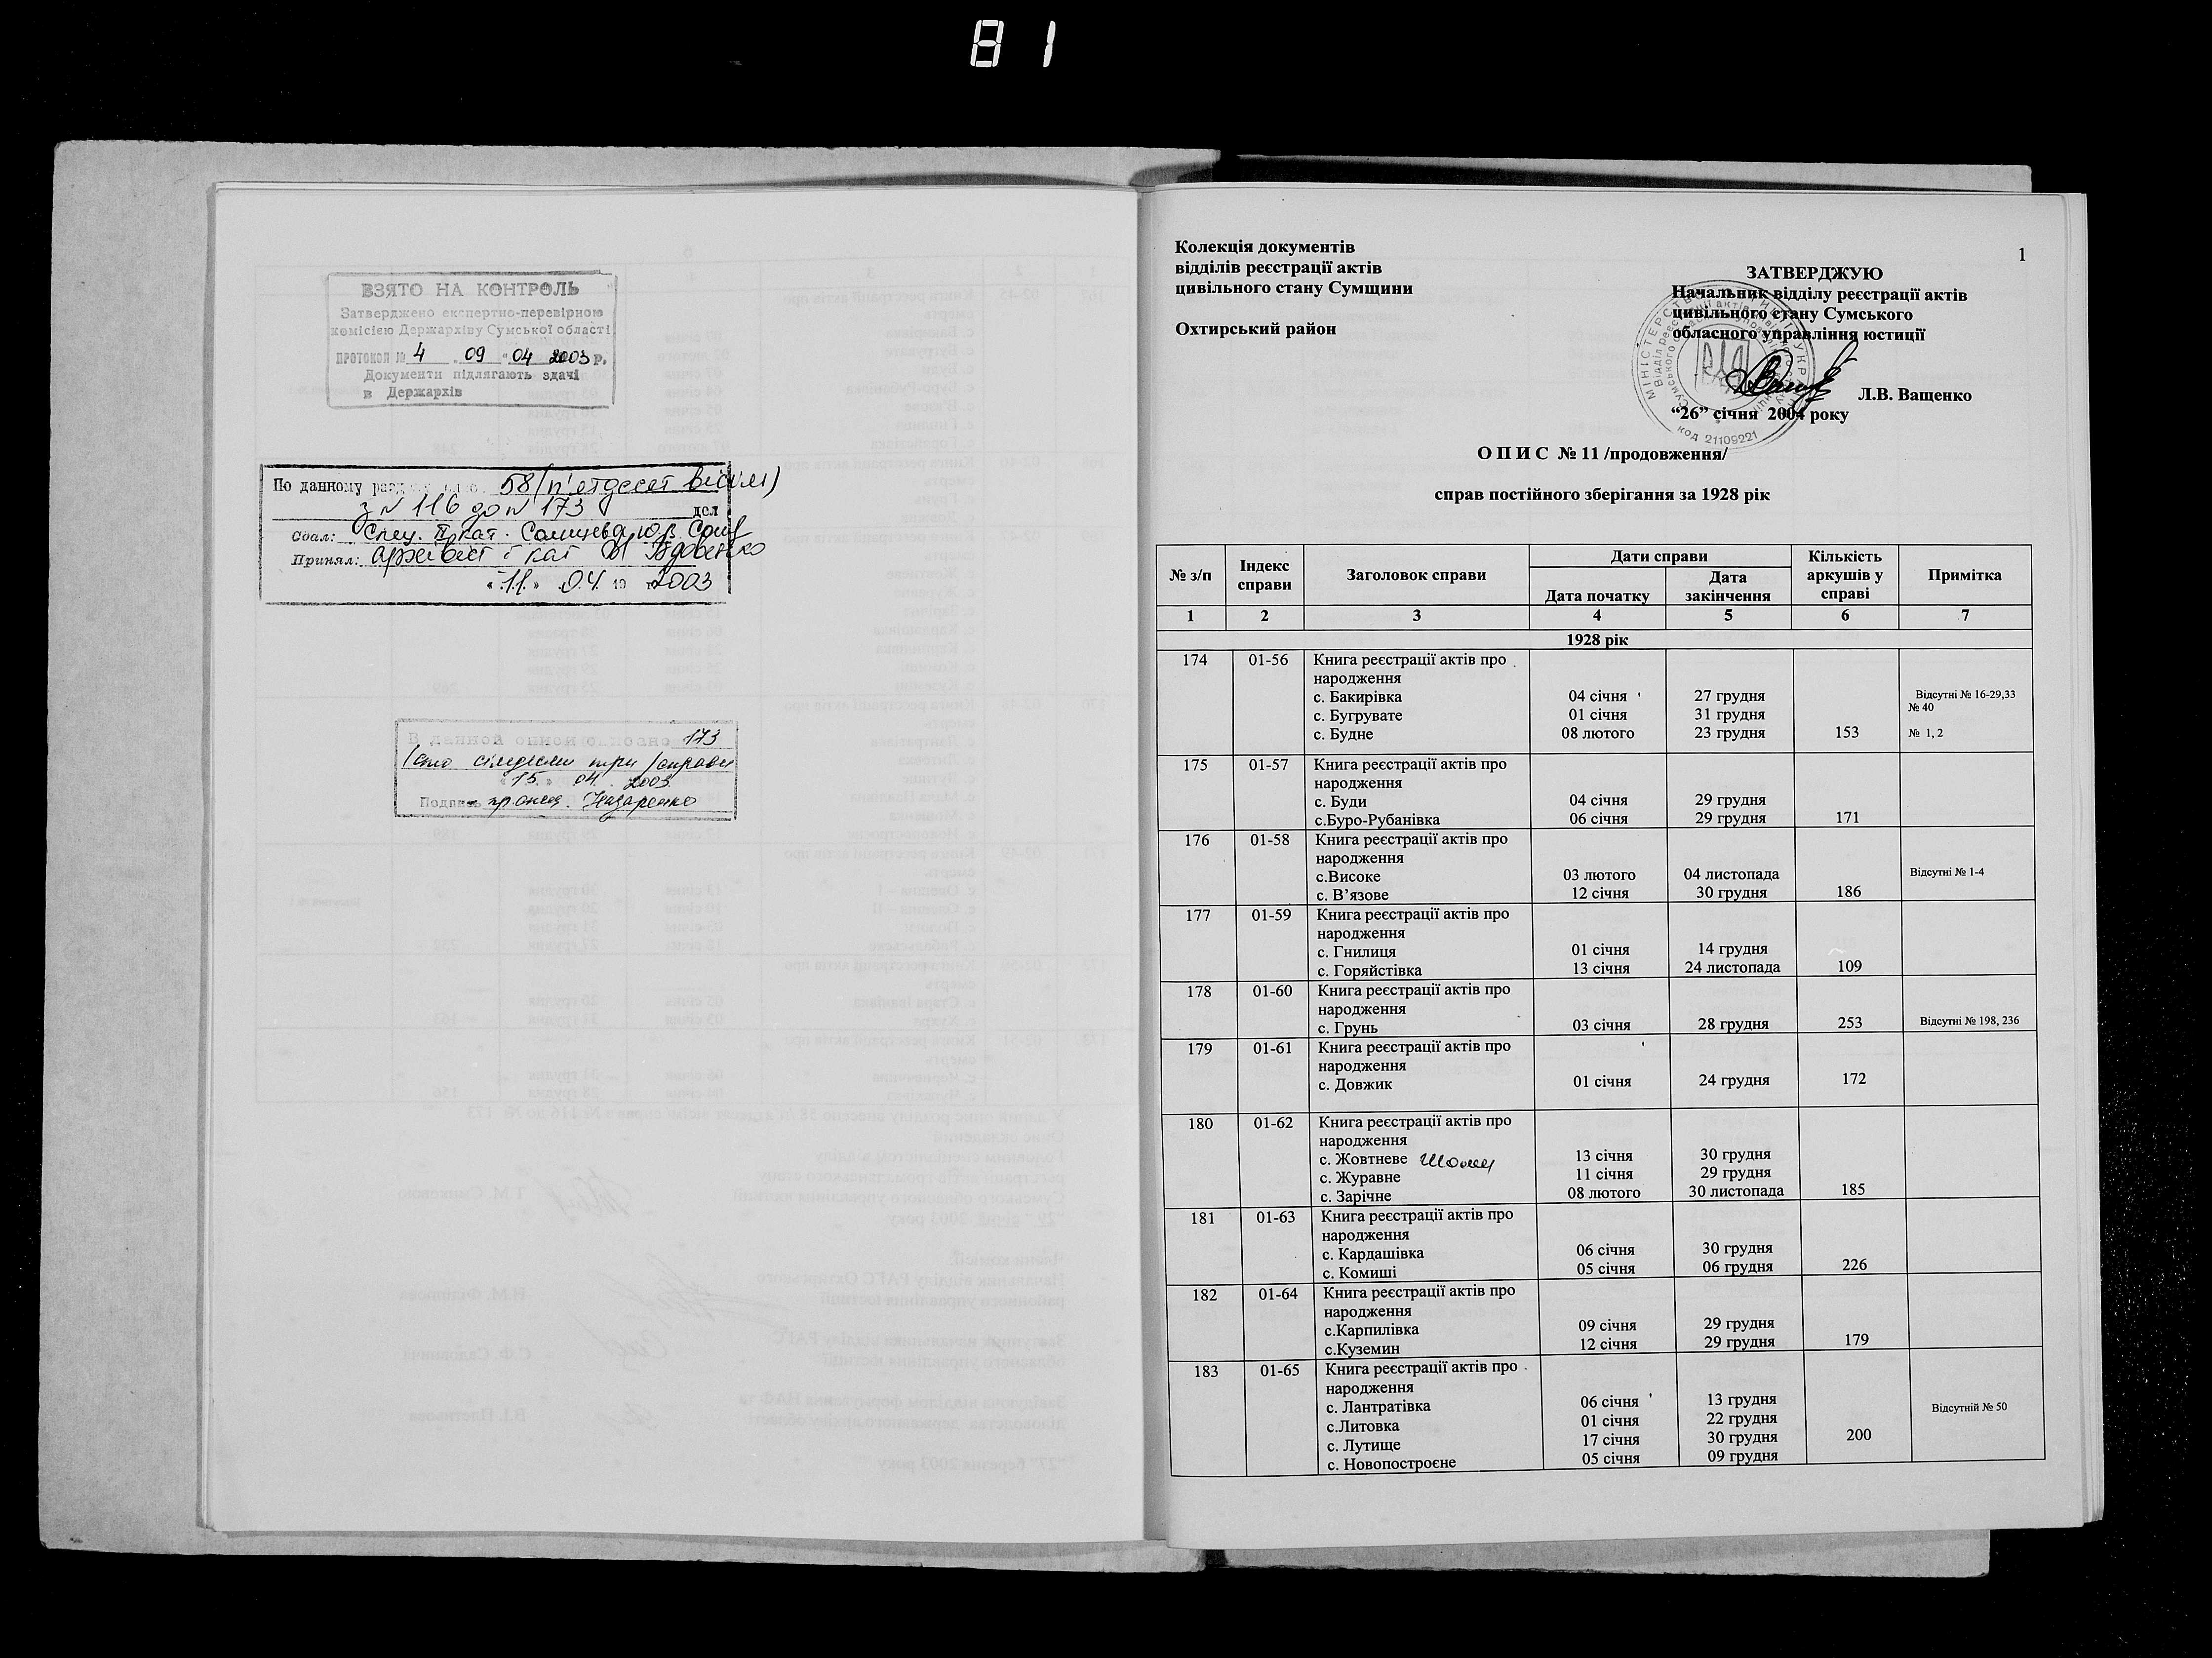 81
ВЗЯТО НА КОНТРОЛЬ
Затверджено експертно-перевірною
комісією Держархіву Сумської області
ПРОТОКОЛ № 4 09 04 2003 р.
Документи підлягають здачі
в Держархів
По данному 58 (п'ятдесят вісім)
з № 116 до № 173 дел
Сдал: Спец. II кат.
Принял: архивіст І кат
«11» 04 19 2003
В данной описи описано 173
(сто сімдесят три) справи
«15» 04. 2003.
Подпись Назаренко
1
Колекція документів
відділів реєстрації актів
цивільного стану Сумщини
Охтирський район
ЗАТВЕРДЖУЮ
Начальник відділу реєстрації актів
цивільного стану Сумського
обласного управління юстиції
Л.В. Ващенко
“26” січня 2004 року
код 21109221
О П И С № 11 /продовження/
справ постійного зберігання за 1928 рік
№ з/п Індекс справи Заголовок справи Дати справи Дата початку Дата закінчення Кількість аркушів у справі Примітка
1 2 3 4 5 6 7
1928 рік
174 01-56 Книга реєстрації актів про
народження
с. Бакирівка 04 січня 27 грудня Відсутні № 16-29,33
с. Бугрувате 01 січня 31 грудня № 40
с. Будне 08 лютого 23 грудня 153 № 1, 2
175 01-57 Книга реєстрації актів про
народження
с. Буди 04 січня 29 грудня
с.Буро-Рубанівка 06 січня 29 грудня 171
176 01-58 Книга реєстрації актів про
народження
с.Високе 03 лютого 04 листопада Відсутні № 1-4
с. В’язове 12 січня 30 грудня 186
177 01-59 Книга реєстрації актів про
народження
с. Гнилиця 01 січня 14 грудня
с. Горяйстівка 13 січня 24 листопада 109
178 01-60 Книга реєстрації актів про
народження
с. Грунь 03 січня 28 грудня 253 Відсутні № 198, 236
179 01-61 Книга реєстрації актів про
народження
с. Довжик 01 січня 24 грудня 172
180 01-62 Книга реєстрації актів про
народження
с. Жовтневе 13 січня 30 грудня
с. Журавне 11 січня 29 грудня
с. Зарічне 08 лютого 30 листопада 185
181 01-63 Книга реєстрації актів про
народження
с. Кардашівка 06 січня 30 грудня
с. Комиші 05 січня 06 грудня 226
182 01-64 Книга реєстрації актів про
народження
с.Карпилівка 09 січня 29 грудня
с.Куземин 12 січня 29 грудня 179
183 01-65 Книга реєстрації актів про
народження
с. Лантратівка 06 січня 13 грудня Відсутній № 50
с.Литовка 01 січня 22 грудня
с. Лутище 17 січня 30 грудня 200
с. Новопостроєне 05 січня 09 грудня